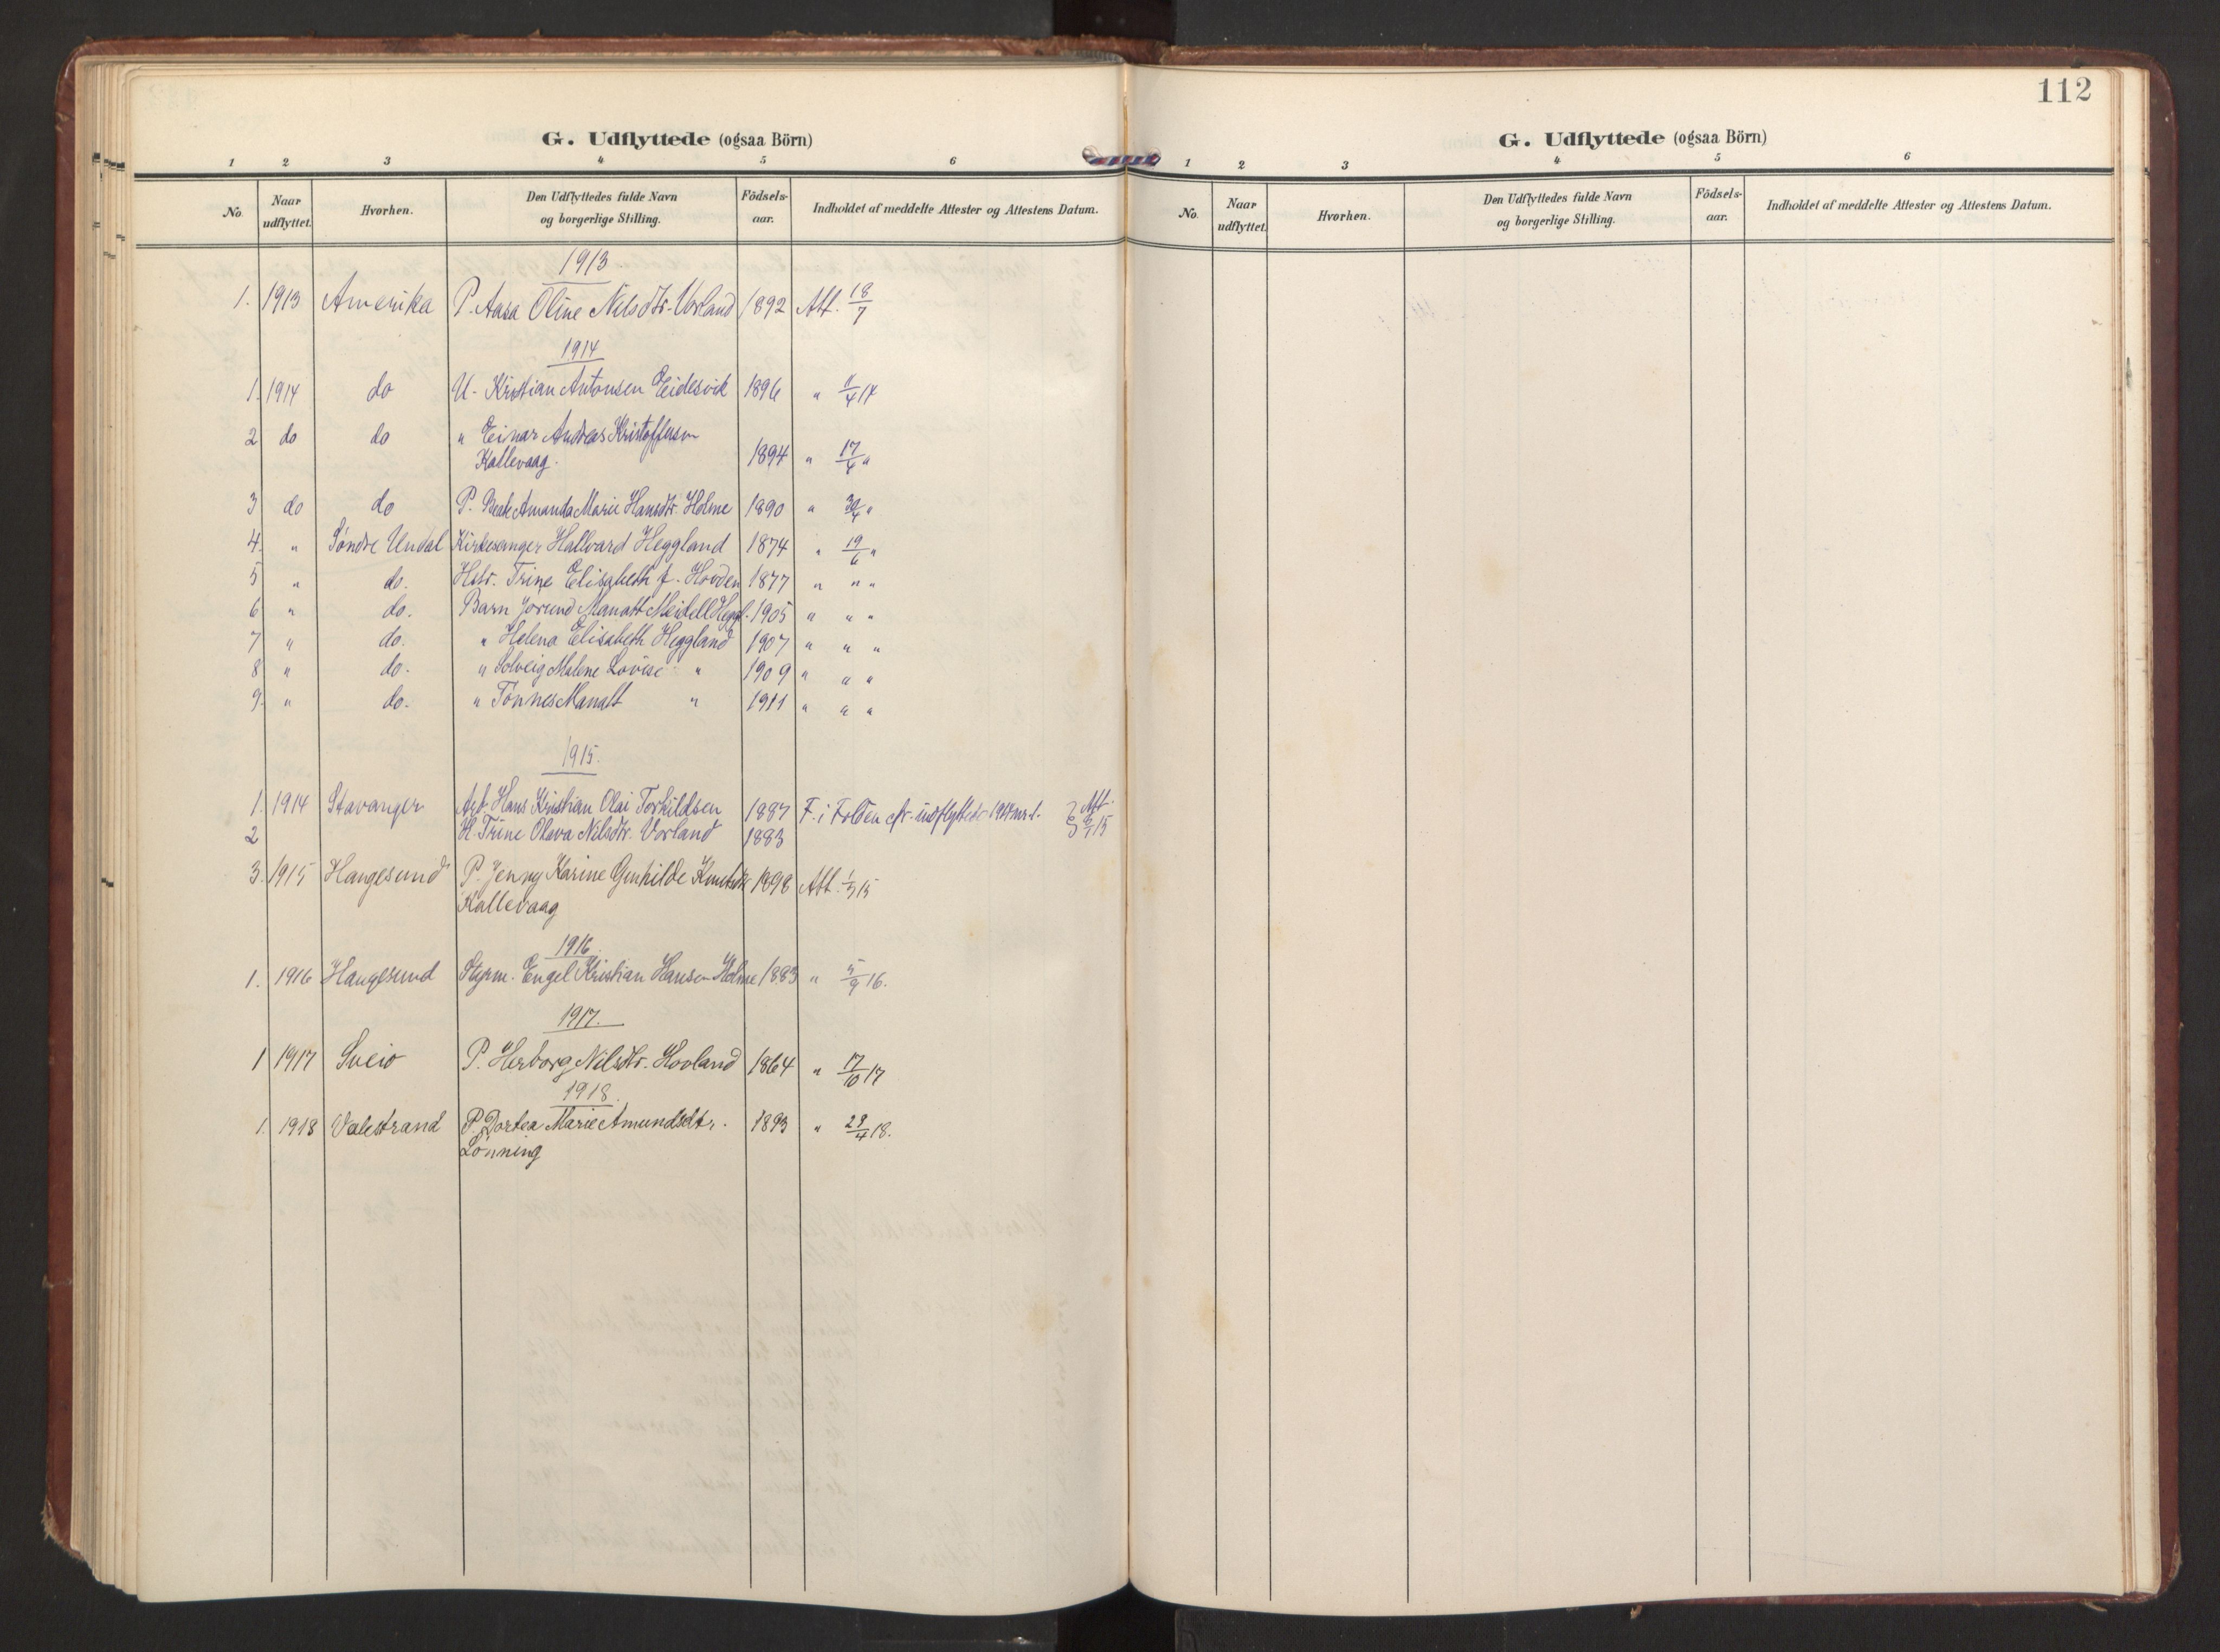 G. Udflyttede (ogsaa Börn)
1 2 3 4 5 6
No. Naar udflyttet. Hvorhen. Den Udflyttedes fulde Navn og borgerlige Stilling. Födsels-aar. Indholdet af meddelte Attester og Attestens Datum.
1913
1. 1913 Amerika P. Aasa Oline Nilsdtr. Vorland 1892 Att. 18/7
1914
1. 1914 do U. Kristian Antonsen Eidesvik 1896 " 11/4 14
2 do do " Einar Andreas Kristoffersen
Kallevaag. 1894 " 17/4 "
3 do do P. Amanda Marie Hansdtr. Holme 1890 " 30/4 "
4. " Søndre Undal Kirkesanger Hallvard Heggland 1874 " 19/6 "
5 " do. Hstr. Trine Elisabeth f. Hovden 1877 " " "
6 " do. Barn Jorund Manatt Meidell Heggl. 1905 " " "
7 " do. " Helena Elisabeth Heggland 1907 " " "
8 " do. " Solveig Malene Lovise " 1909 " " "
9. " do. " Tönnes Manatt " 1911 " " "
1915.
1. 1914 Stavanger Arb. Hans Kristian Olai Torkildsen 1887 F. i Folden cfr. indflyttede 1914 nr. 1. Att.
2 H. Trine Olava Nilsdtr. Vorland 1883 15
3. 1915 Haugesund P. Jenny Karine Gunhilde Knutsdtr 1898 Att. 15
Kallevaag
1916.
1. 1916 Haugesund Styrm. Engel Kristian Hansen Holme 1883 " 5/9 16.
1917.
1 1917 Sveio P. Herborg Nilsdtr. Hovland 1864 " 17/10 17
1918.
1. 1918 Valestrand P. Dortea Marie Amundsdtr. 1893 " 29/4 18.
Lönning
112
G. Udflyttede (ogsaa Börn)
1 2 3 4 5 6
No. Naar udflyttet. Hvorhen. Den Udflyttedes fulde Navn og borgerlige Stilling. Födsels-aar. Indholdet af meddelte Attester og Attestens Datum.